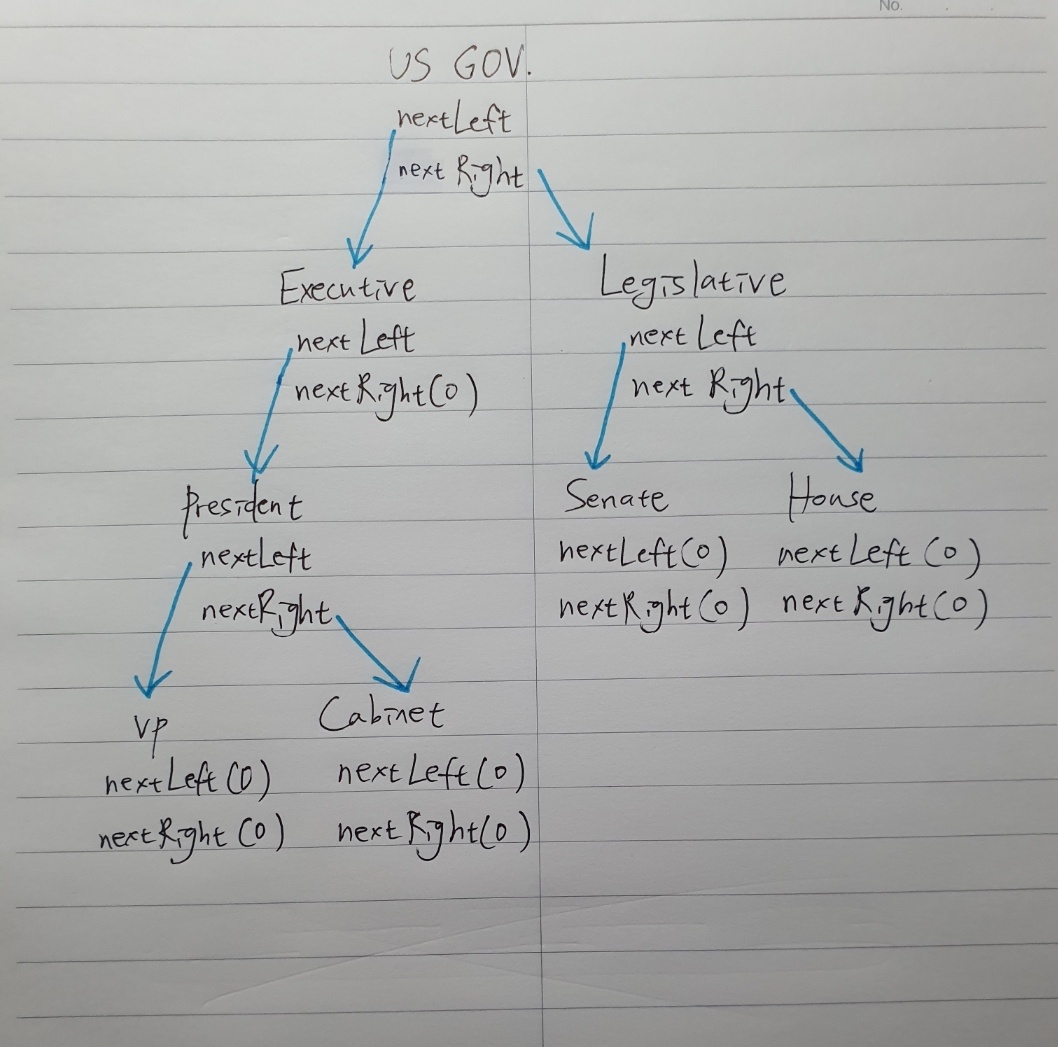 No.
US GOV.
nextLeft
next Right
Executive
next Left
nextRight(0)
Legislative
next Left
next Right
President
nextLeft
nextRight
Senate
nextLeft(0)
nextRight(0)
House
nextLeft(0)
nextRight(0)
VP
nextLeft(0)
nextRight(0)
Cabinet
nextLeft(0)
nextRight(0)